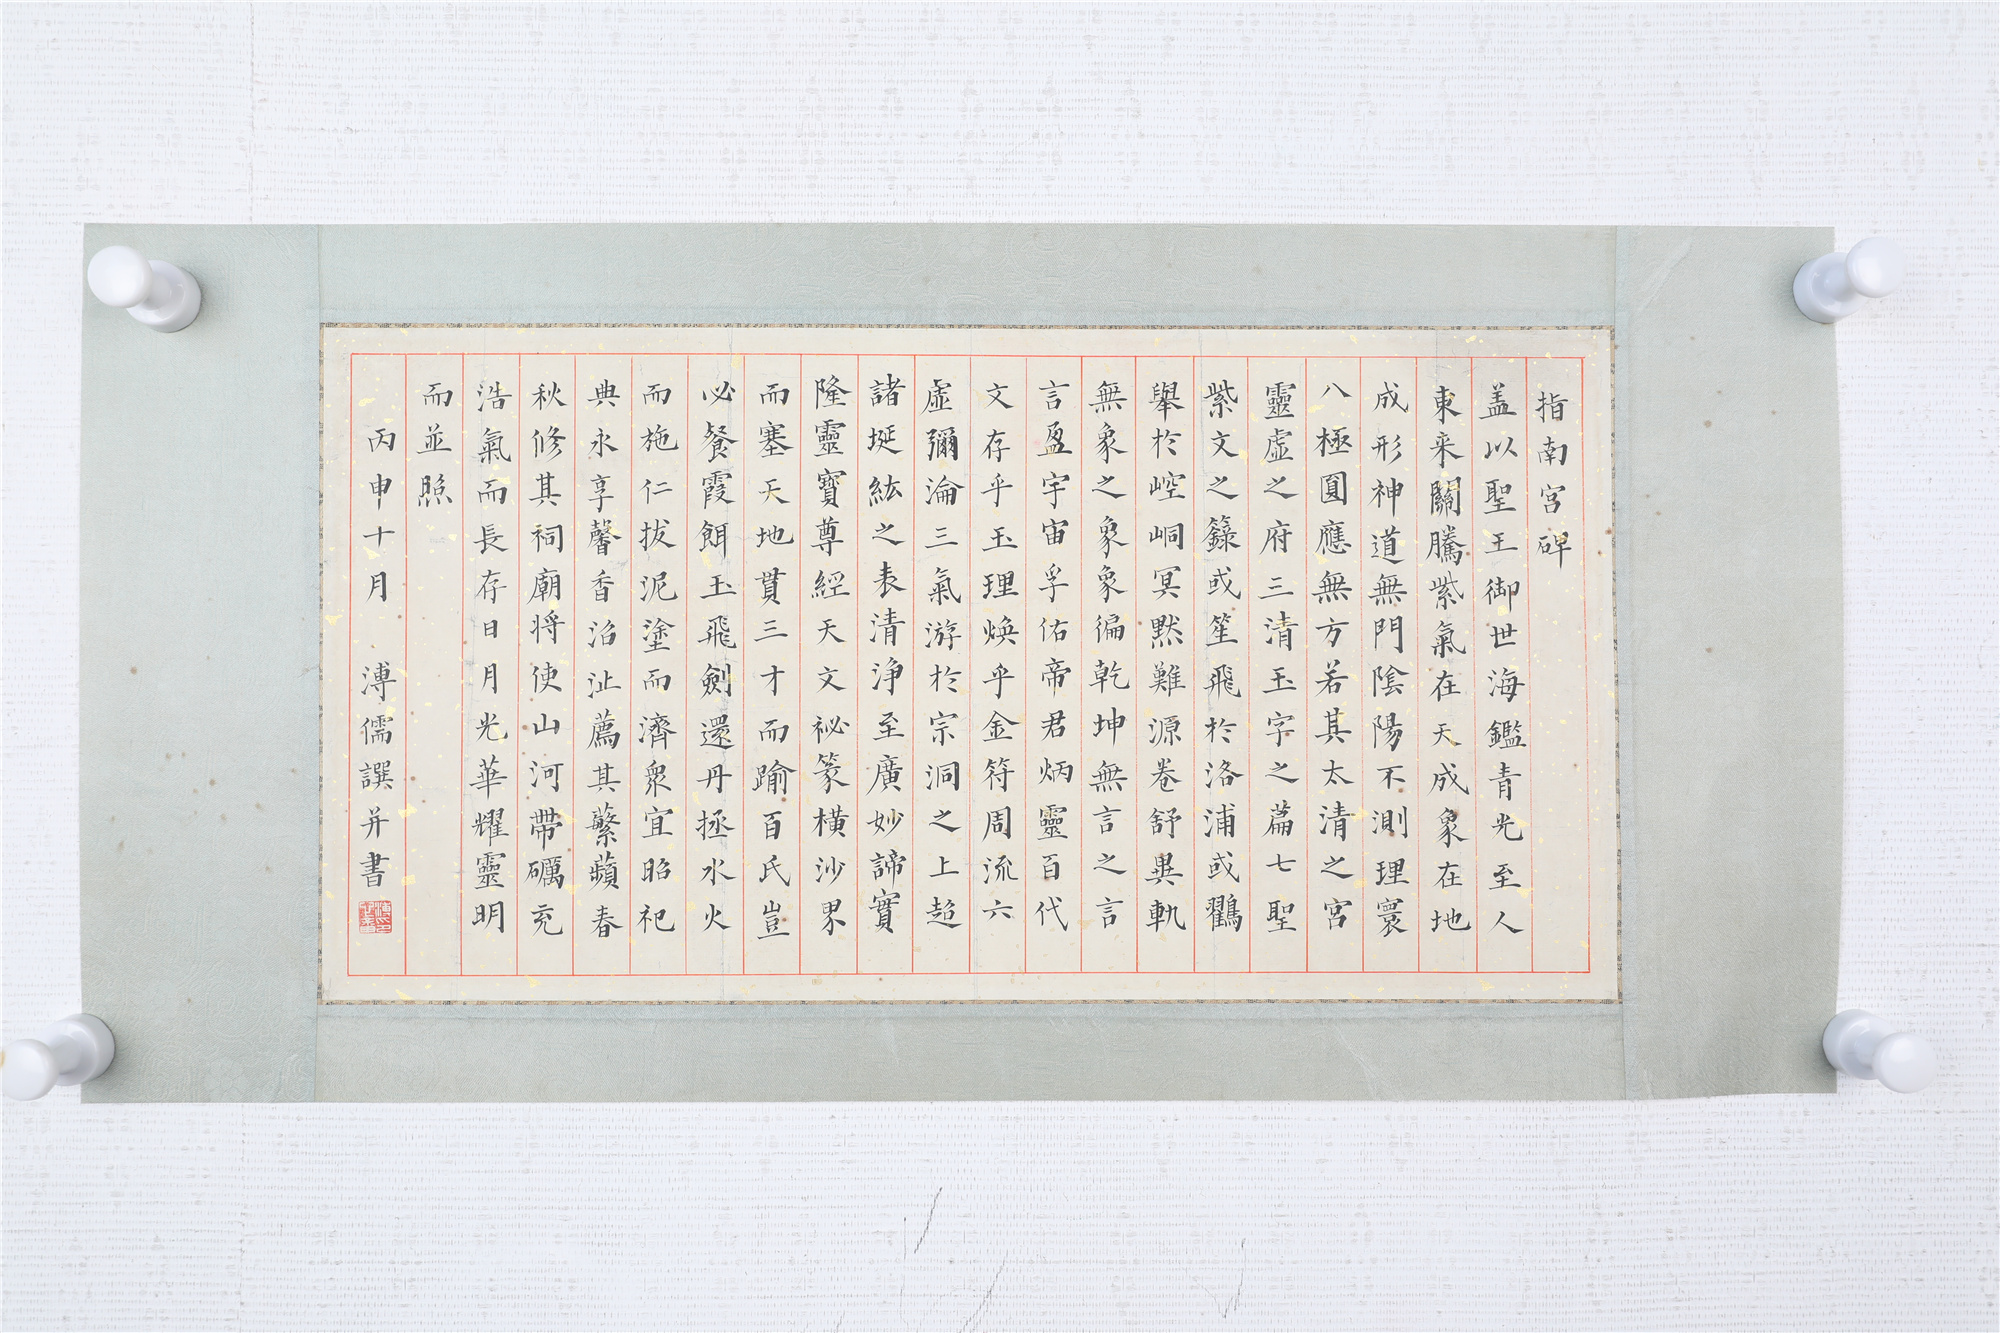 指南宮碑
盖以聖王御世海鑑青光至人
東来關騰紫氣在天成象在地
成形神道無門陰陽不測理寰
八極圓應無方若其太清之宮
靈虛之府三清玉字之篇七聖
紫文之籙或笙飛於洛浦或鸛
舉於崆峒冥默難源卷舒異軌
無象之象象徧乾坤無言之言
言盈宇宙孚佑帝君炳靈百代
文存乎玉理煥乎金符周流六
虛彌淪三氣游於宗洞之上超
諸埏紘之表清淨至廣妙諦實
隆靈寶尊經天文祕篆橫沙界
而塞天地貫三才而踰百氏豈
必餐霞餌玉飛劍還丹拯水火
而施仁拔泥塗而濟衆宜昭祀
典永享馨香沼沚薦其蘩蘋春
秋修其祠廟将使山河帶礪充
浩氣而長存日月光華耀靈明
而並照
丙申十月 溥儒譔并書